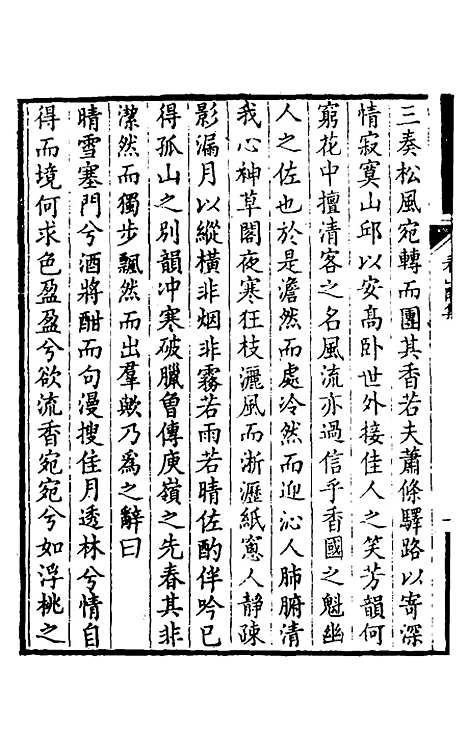 三奏松風宛轉而團其香若夫蕭條驛路以寄深
情寂寞山邱以安高卧世外接佳人之笑芳韻何
窮花中擅清客之名風流亦過信乎香國之魁幽
人之佐也於是澹然而處泠然而迎沁人肺腑清
我心神草閣夜寒狂枝灑風而淅瀝紙窻人靜疎
影漏月以縱橫非烟非霧若雨若晴佐酌伴吟已
得孤山之别韻冲寒破臘曾傳庾嶺之先春其非
潔然而獨步飄然而出羣歟乃為之辭曰
晴雪塞門兮酒將酣而句漫搜佳月透林兮情自
得而境何求色盈盈兮欲流香宛宛兮如浮桃之